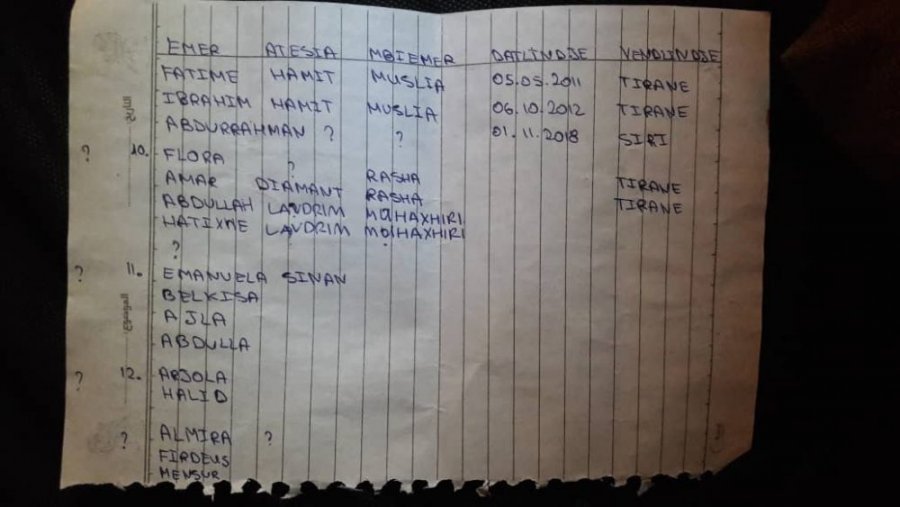 EMER ATESIA MBIEMER DATLINDJE VENDLINDJE
FATIME HAMIT MUSLIA 05.05.2011 TIRANE
IBRAHIM HAMIT MUSLIA 06.10.2012 TIRANE
ABDURRAHMAN ? ? 01.11.2018 SIRI
? 10. FLORA ?
AMAR DIAMANT RASHA TIRANE
ABDULLAH LAVDRIM RASHA TIRANE
HATIXHE LAVDRIM HAXHIRI
?
? 11. EMANUELA SINAN
BELKISA
AJLA
ABDULLA
? 12. ARJOLA
HALID
? ALMIRA ?
FIRDEUS
MENSUR
التاريخ
الموضوع